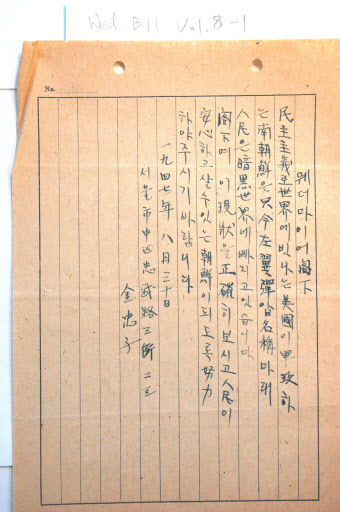 Wed. B11 Vol. 8-1
No.
웨더마이어 閣下
民主主義로 世界에 빗나는 美國이 軍政하
는 南朝鮮은 只今 左翼彈압 名稱마대
人民은 暗黑世界에 빠지고 있습니다
閣下여 이 現狀을 正確히 보시고 人民이
安心하고 살 수 있는 朝鮮이 되도록 努力
하야 주시기 바랍니다
一九四七年 八月 三十日
서울市 中區 忠武路 二街 二三
金忠子